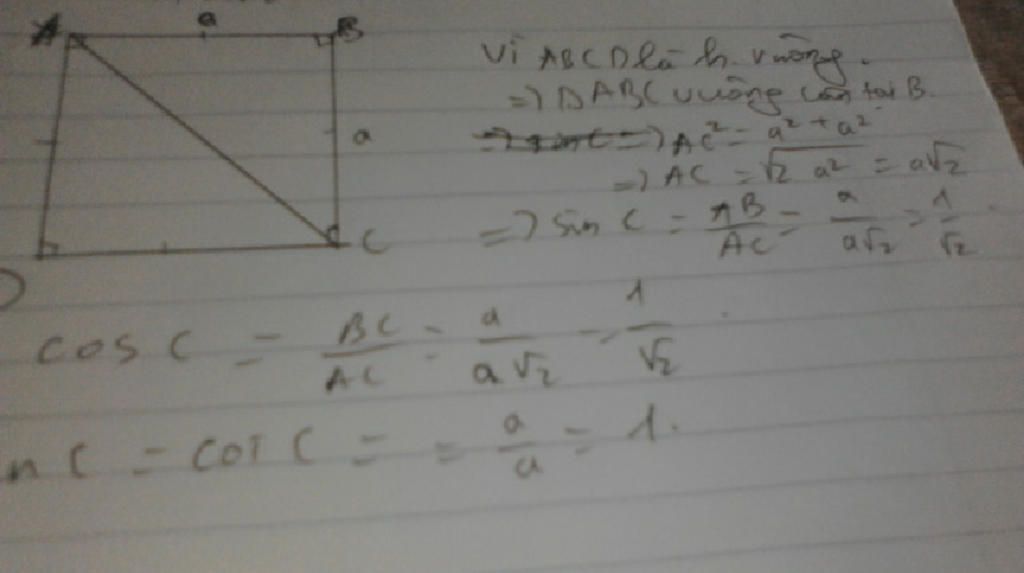 A a B
Vì ABCD là h. vuông.
=> ΔABC vuông cân tại B.
=> AC² = a² + a²
a
=> AC = √2 a² = a√2
=> Sin C = AB/AC = a/a√2 = 1/√2
C
cos C = BC/AC = a/a√2 = 1/√2
n C = cot C = = a/a = 1.